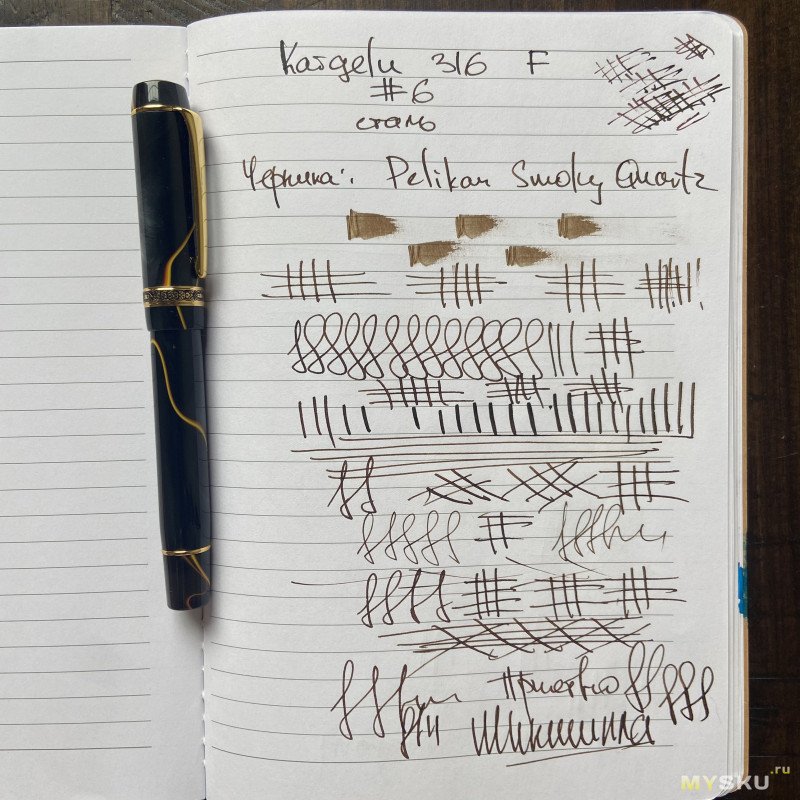 Kasgelu 316 F
#6
сталь
Чернила: Pelikan Smoky Quartz
Приятно
Шиншилла
MYSKU.ru